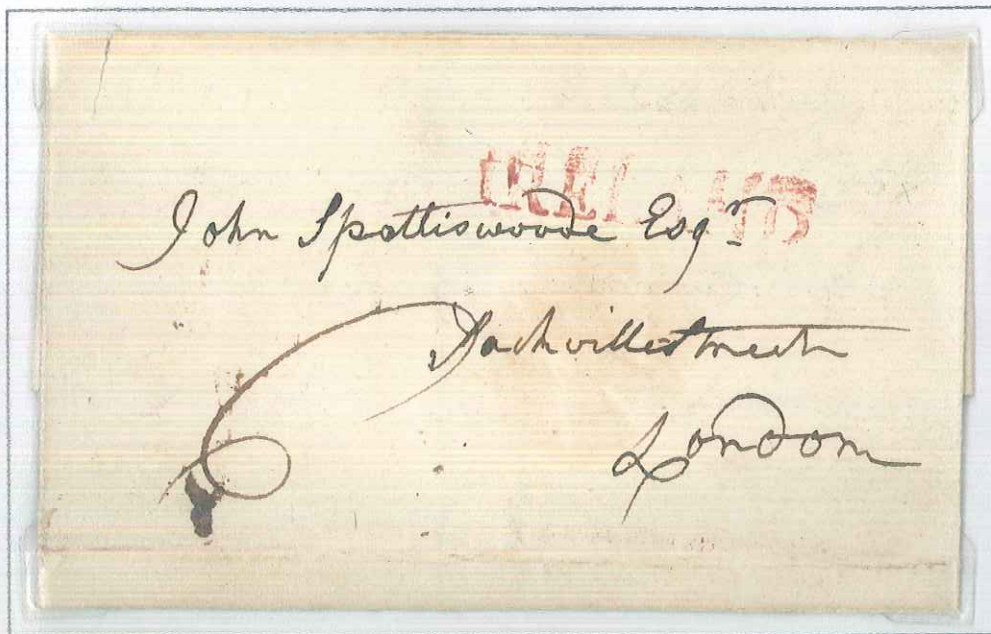 IRELAND
John Spottiswoode Esqr
Sackville Street
London
6